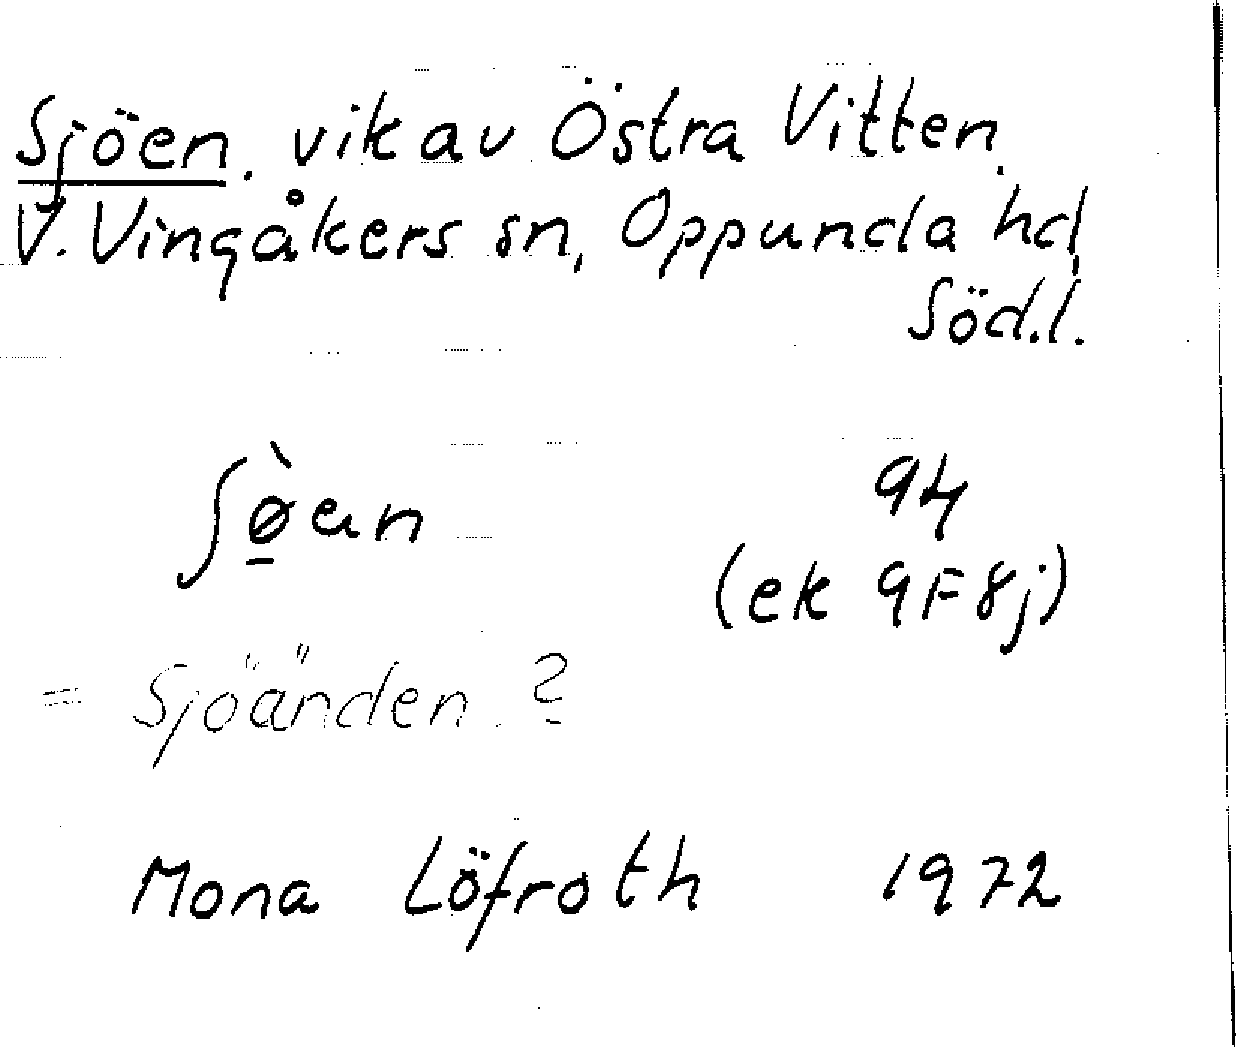 Sjöen. vik av Östra Vitten.
V. Vingåkers sn, Oppunda hd,
Söd.l.
94
(ek 9F8j)
= Sjöänden ?
Mona Löfroth 1972